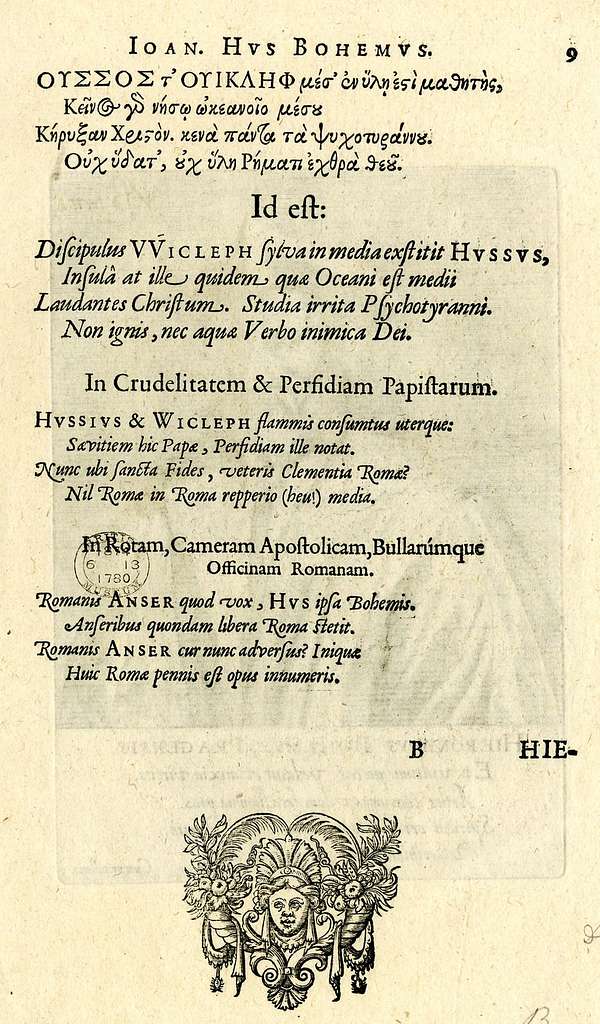 IOAN. HVS BOHEMVS. 9
ΟΥΣΣΟΣ τ' ΟΥΙΚΛΗΦ μέσ' ἐν ὕλῃ ἐστὶ μαθητὴς,
Κεῖνος γὸ νήσῳ ὠκεανοῖο μέσου
Κήρυξαν Χριστόν. κενὰ πάντα τὰ ψυχοτυράννου.
Οὐχ ὕδατ', οὐχ ὕλη Ρήματι ἐχθρὰ θεοῦ.
Id eſt:
Diſcipulus VVICLEPH ſylva in media exſtitit HVSSVS,
Inſulâ at ille quidem quæ Oceani eſt medii
Laudantes Chriſtum. Studia irrita Pſychotyranni.
Non ignis, nec aquæ Verbo inimica Dei.
In Crudelitatem & Perfidiam Papiſtarum.
HVSSIVS & WICLEPH flammis conſumtus uterque:
Sævitiem hic Papæ, Perfidiam ille notat.
Nunc ubi ſancta Fides, veteris Clementia Romæ?
Nil Romæ in Roma repperio (heu!) media.
In Rotam, Cameram Apoſtolicam, Bullarúmque
Officinam Romanam.
Romanis ANSER quod vox, HVS ipſa Bohemis.
Anſeribus quondam libera Roma ſtetit.
Romanis ANSER cur nunc adverſus? Iniquæ
Huic Romæ pennis eſt opus innumeris.
6 13
1780
MUSEUM
B HIE-